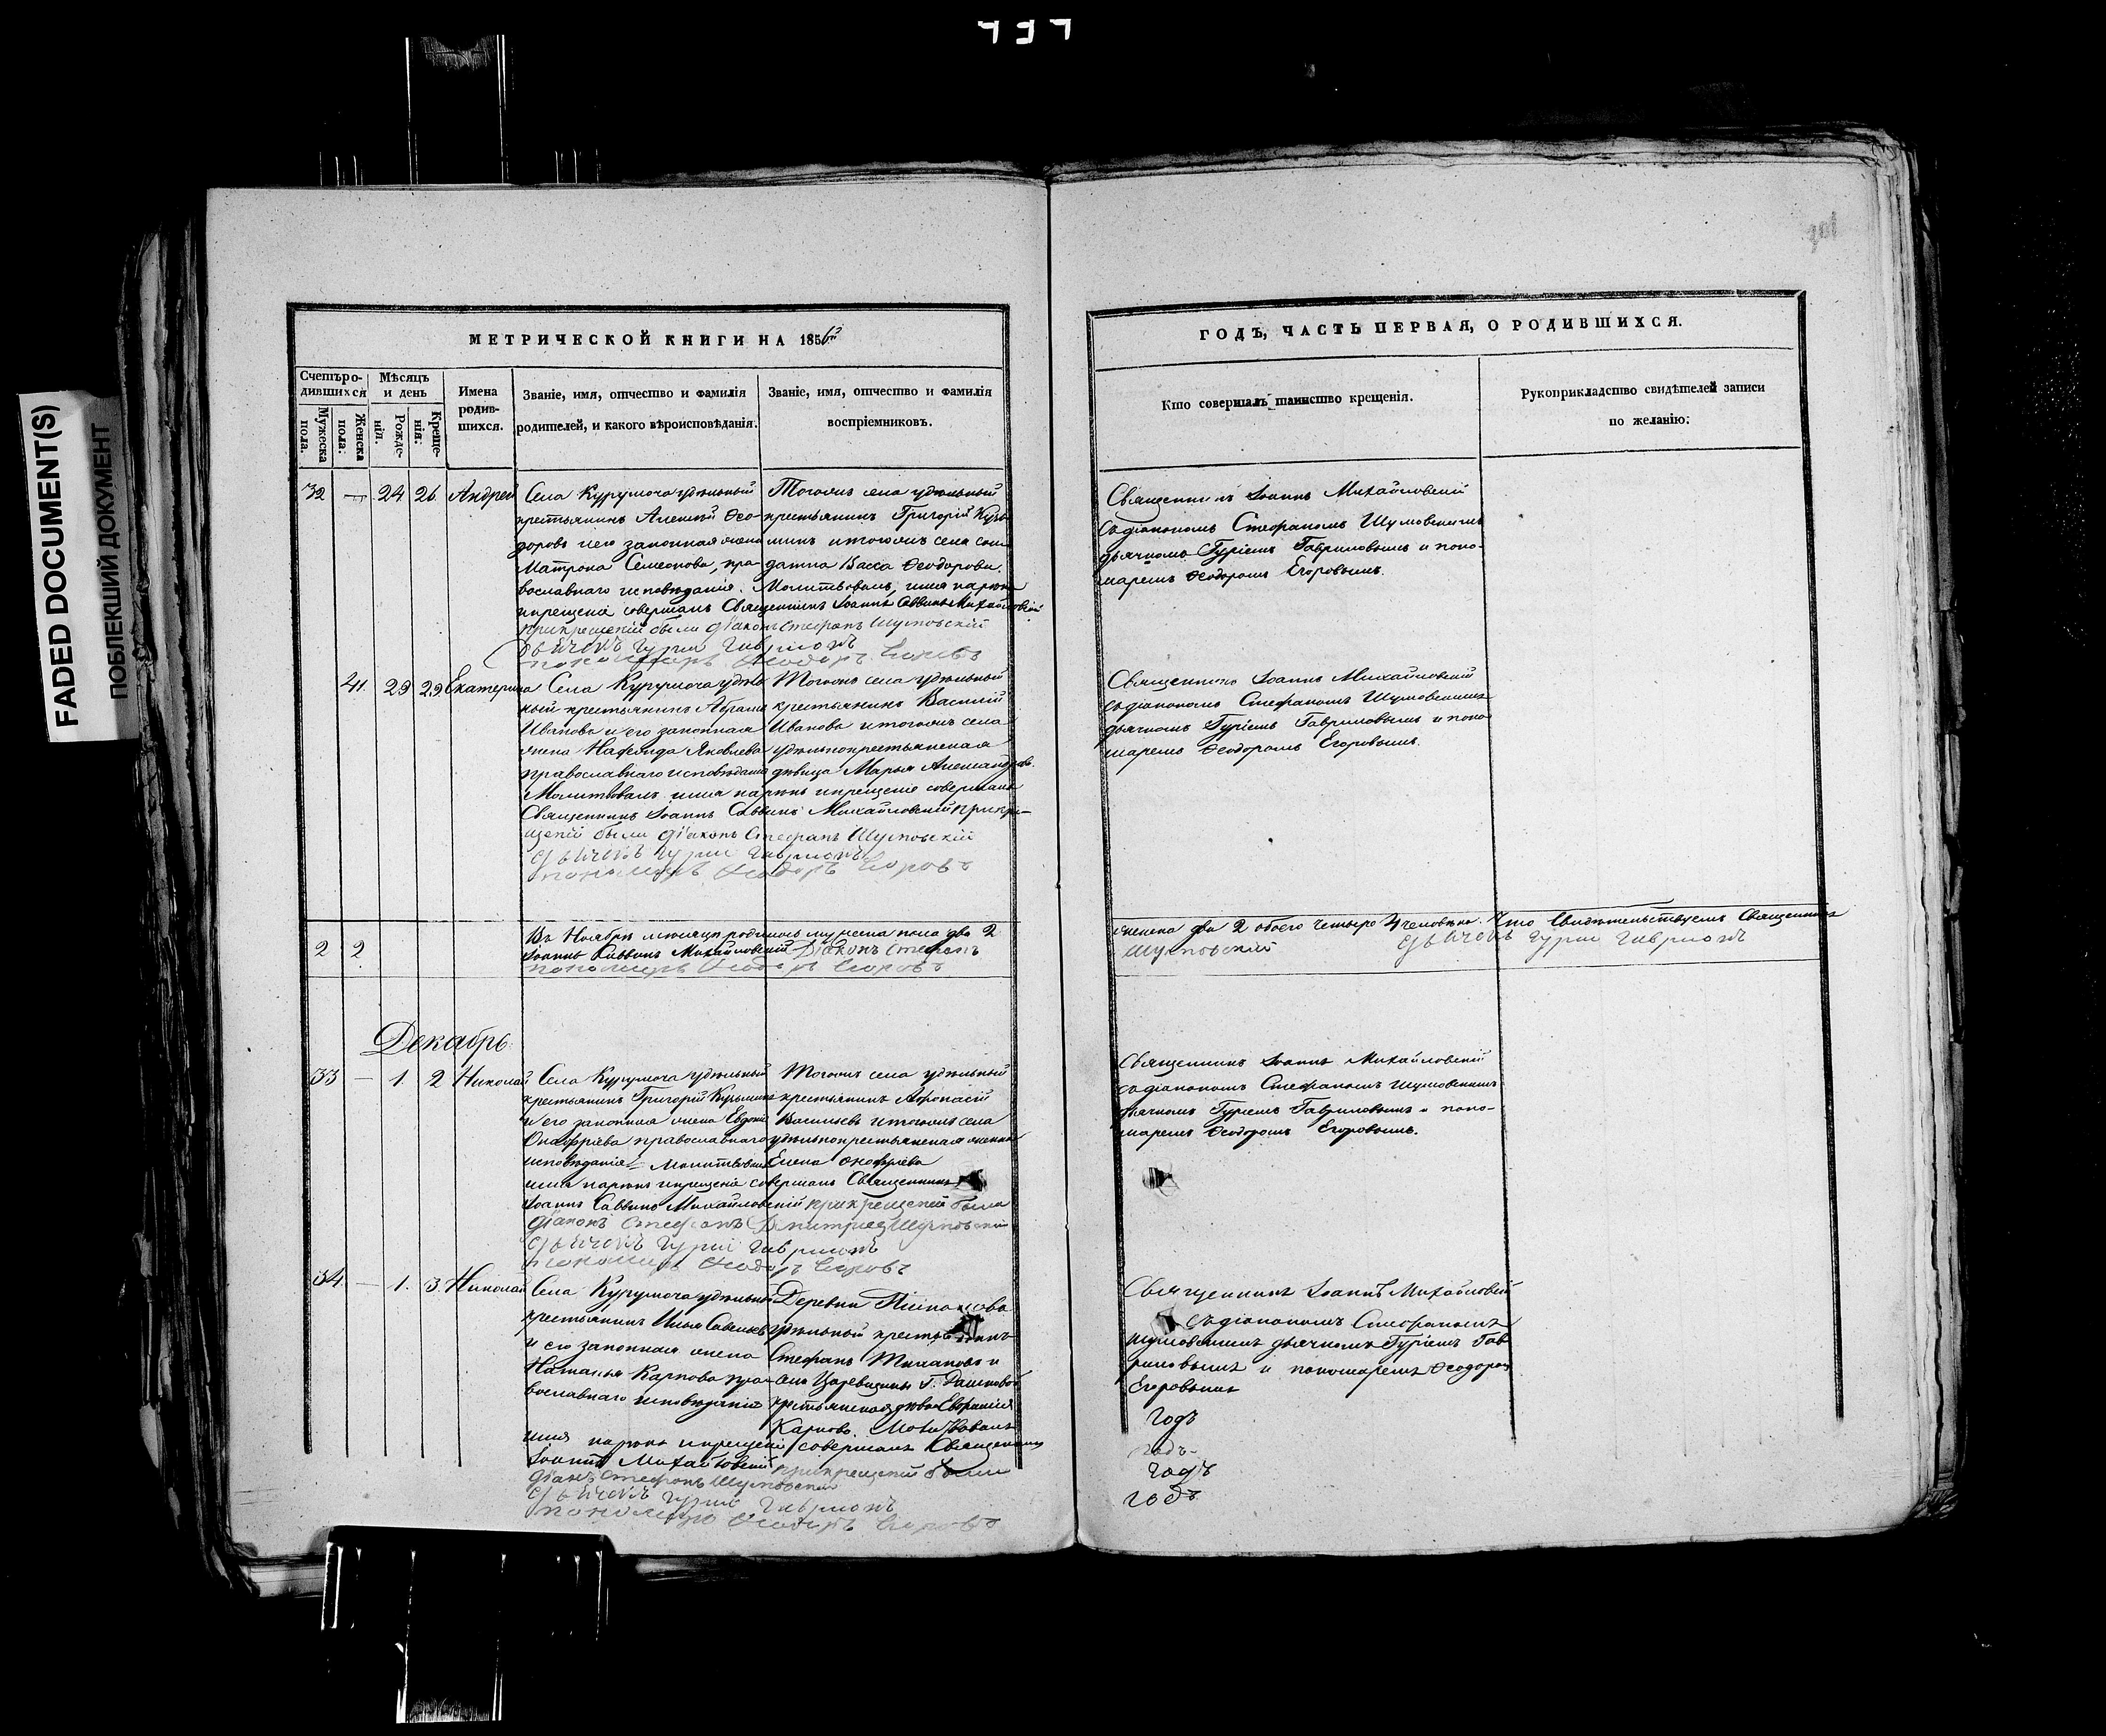 737
FADED DOCUMENT(S)
ПОБЛЕКШИЙ ДОКУМЕНТ
МЕТРИЧЕСКОЙ КНИГИ НА 185
Счетъ ро-
дившихся
Мужеска
пола.
Женска
пола.
Мѣсяцъ
и день
Рожде-
нія.
Креще-
нія.
Имена
родив-
шихся.
Званіе, имя, отчество и фамилія
родителей, и какого вѣроисповѣданія.
Званіе, имя, отчество и фамилія
воспріемниковъ.
32 — 24 26 Андрей
Села Курумоча удѣльный
крестьянинъ Алексѣй Ѳео-
доровъ и его законная жена
Матрона Семенова, пра-
вославнаго исповѣданія.
Тогожъ села удѣльный
крестьянинъ Григорій Кузь
минъ и тогожъ села сол
датка Васса Ѳеодорова.
Молитвовалъ, имя нарекъ
и крещеніе совершалъ Священникъ Іоаннъ Саввинъ Михайловскій
при крещеніи были діаконъ Стефанъ Шумовскій
дьячекъ Гурій Гавриловъ
пономарь Ѳеодоръ Егоровъ
41. 29 29 Екатерина
Села Курумоча удѣль
ный крестьянинъ
Иванова и его законная
жена Яковлева
православнаго исповѣданія
Тогожъ села удѣльный
крестьянинъ Василій
Иванова и тогожъ села
удѣльнокрестьянская
дѣвица Марья Александрова.
Молитвовалъ имя нарекъ и крещеніе совершалъ
Священникъ Іоаннъ Саввинъ Михайловскій при кре-
щеніи были діаконъ Стефанъ Шумовскій
дьячекъ Гурій Гавриловъ
пономарь Ѳеодоръ Егоровъ
2 2
Въ Ноябрѣ мѣсяцѣ родилось мужеска пола два 2
Іоаннъ Саввинъ Михайловскій Діаконъ Стефанъ
пономарь Ѳеодоръ Егоровъ
Декабрь
33 — 1. 2 Николай
Села Курумоча удѣльный
крестьянинъ Григорій Кузьминъ
и его законная жена Евдокія
Онофріева православнаго
исповѣданія. Молитвовалъ
Тогожъ села удѣльный
крестьянинъ Аѳонасій
Васильевъ и тогожъ села
удѣльнокрестьянская женка
Елена Онофріева
имя нарекъ и крещеніе совершалъ Священникъ
Іоаннъ Саввинъ Михайловскій при крещеніи были
діаконъ Стефанъ Дмитріевъ Шумовскій
дьячекъ Гурій Гавриловъ
пономарь Ѳеодоръ Егоровъ
34. — 1. 3. Николай
Села Курумоча удѣльный
крестьянинъ Илья Савельевъ
и его законная жена
Наталья Карпова пра-
вославнаго исповѣданія
Деревни
удѣльный крестьянинъ
Стефанъ и
села Царевщины Г.
крестьянская дѣвка
Карпова. Молитвовалъ
имя нарекъ и крещеніе совершалъ Священникъ
Іоаннъ Михайловскій при крещеніи были
діаконъ Стефанъ Шумовскій
дьячекъ Гурій Гавриловъ
пономарь Ѳеодоръ Егоровъ
ГОДЪ, ЧАСТЬ ПЕРВАЯ, О РОДИВШИХСЯ.
Кто совершалъ таинство крещенія.
Рукоприкладство свидѣтелей записи
по желанію.
Священникъ Іоаннъ Михайловскій
съ діакономъ Стефаномъ Шумовскимъ
дьячкомъ Гуріемъ Гавриловымъ и поно-
маремъ Ѳеодоромъ Егоровымъ.
Священникъ Іоаннъ Михайловскій
съ діакономъ Стефаномъ Шумовскимъ
дьячкомъ Гуріемъ Гавриловымъ и поно
маремъ Ѳеодоромъ Егоровымъ.
женска два 2 обоего четыре 4 человѣка. Что свидѣтельствуемъ Священникъ
Шумовскій дьячекъ Гурій Гавриловъ
Священникъ Іоаннъ Михайловскій
съ діакономъ Стефаномъ Шумовскимъ
дьячкомъ Гуріемъ Гавриловымъ и поно-
маремъ Ѳеодоромъ Егоровымъ.
Священникъ Іоаннъ Михайловскій
съ діакономъ Стефаномъ
Шумовскимъ дьячкомъ Гуріемъ Гав
риловымъ и пономаремъ Ѳеодоромъ
Егоровымъ
годъ
годъ
годъ
годъ